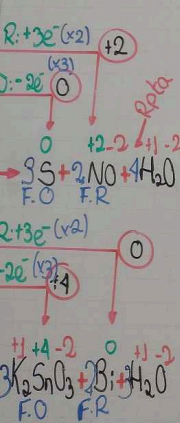 R:+3e⁻(x2)
+2
O:-2e⁻
(x3)
0
Rpta
0 +2 -2 +1 -2
→3S+2NO+4H₂O
F.O F.R
R:+3e⁻(x2)
0
-2e⁻(x3)
+4
+1 +4 -2 0 +1 -2
3K₂SnO₃+2Bi+3H₂O
F.O F.R